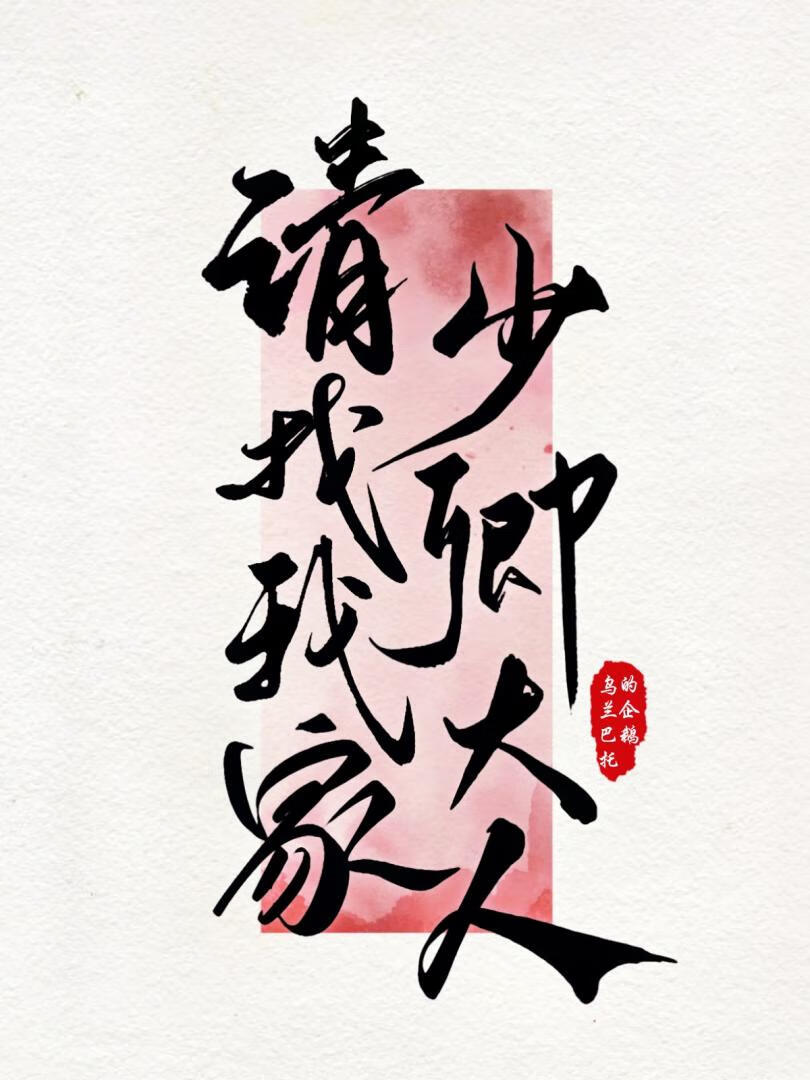 请找我家
少卿大人
乌兰巴托
的企鹅